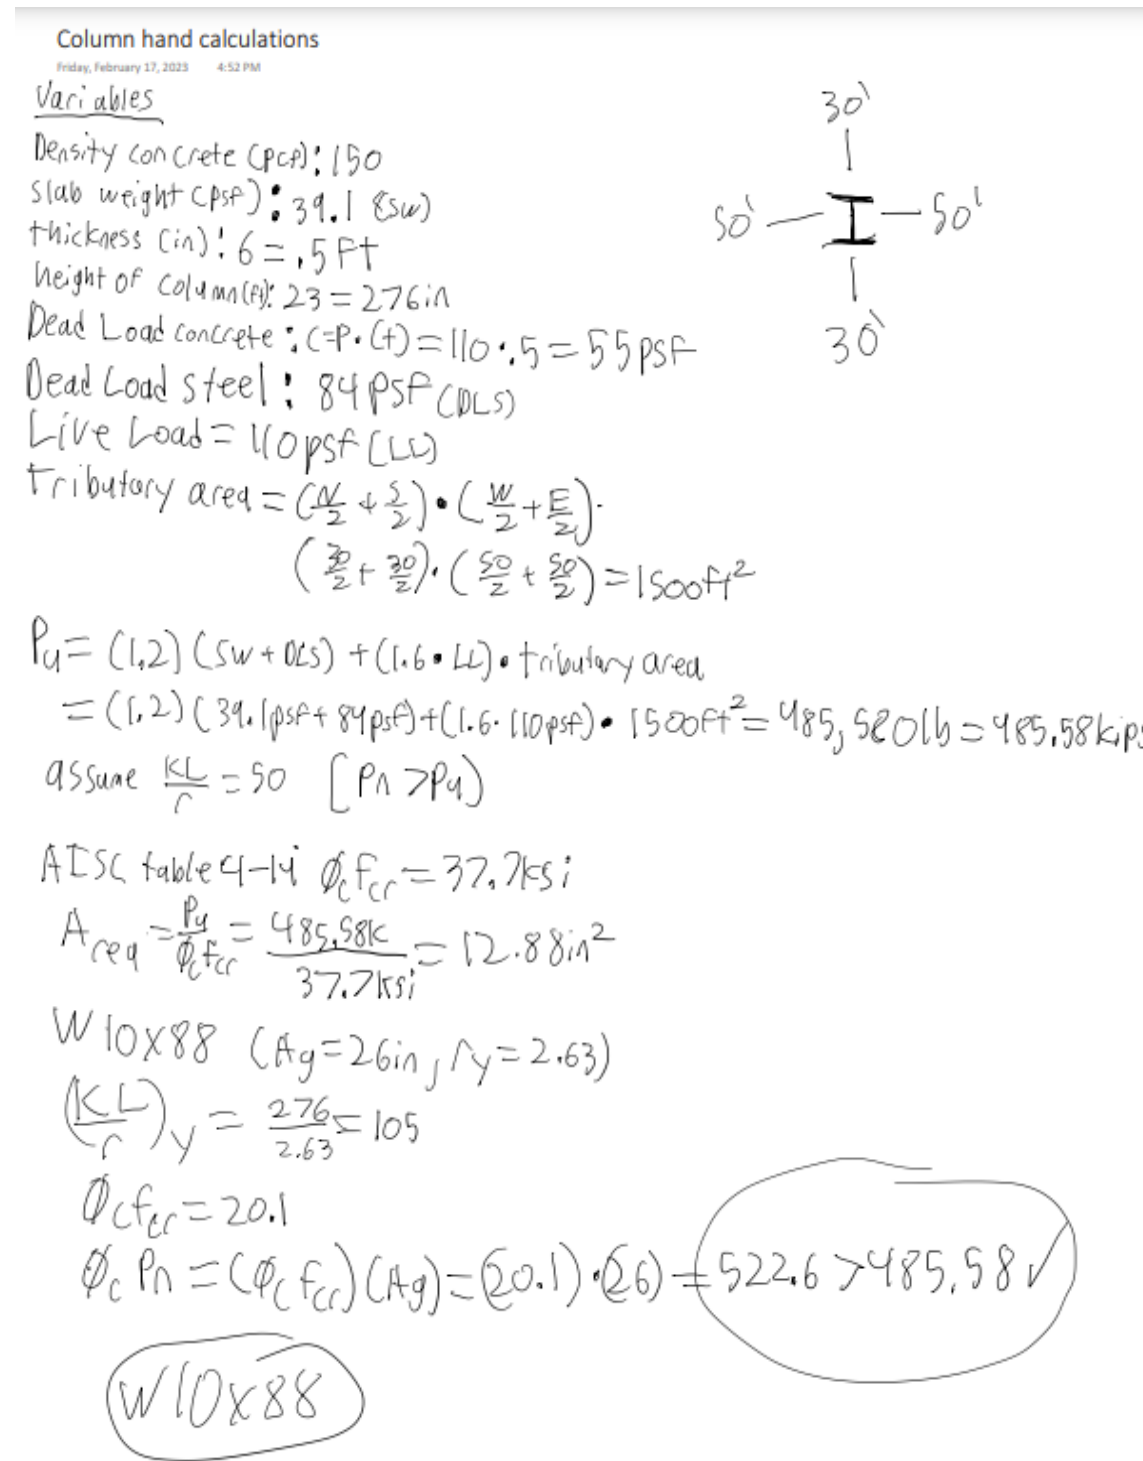 Column hand calculations
Friday, February 17, 2023 4:52 PM
Variables
Density concrete (pcf): 150
slab weight (psf): 39.1 (sw)
thickness (in): 6 = .5 ft
height of column (ft): 23 = 276in
Dead Load concrete: C=P·(t) = 110·.5 = 55psf
Dead Load steel: 84 psf (DLS)
Live Load = 110psf (LL)
tributary area = (N/2 + S/2)·(W/2 + E/2)·
(30/2 + 30/2)·(50/2 + 50/2) = 1500ft²
30'
50' — I — 50'
30'
Pu = (1.2)(SW + DLS) + (1.6·LL)·tributary area
= (1.2)(39.1psf + 84psf) + (1.6·110psf)·1500ft² = 485,580lb = 485.58kips
assume KL/r = 50 [Pn > Pu)
AISC table 4-14 ϕcfcr = 37.7ksi
Areq = Pu/ϕcfcr = 485.58k/37.7ksi = 12.88in²
W10x88 (Ag=26in, ry=2.63)
(KL/r)y = 276/2.63 = 105
ϕcfcr = 20.1
ϕc Pn = (ϕc fcr)(Ag) = (20.1)·(26) = 522.6 > 485.58 ✓
W10x88